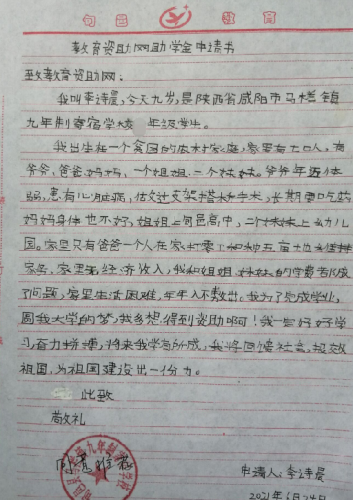 旬邑 教育
教育资助网助学金申请书
致教育资助网:
我叫李诗晨,今天九岁,是陕西省咸阳市马栏镇
九年制寄宿学校 年级学生。
我出生在一个贫困的农村家庭,家里有七口人,
爷爷,爸爸妈妈,一个姐姐,二个妹妹。爷爷年迈体
弱,患有心脏病,做过支架搭桥手术,长期需吃药
妈妈身体也不好,姐姐上旬邑高中,二个妹妹上幼儿
园。家里只有爸爸一个人在家打零工和种五亩地
家务,家里无经济收入,我和姐姐妹妹的学费都成
了问题,家里生活困难,年年入不敷出,我为了完成学业,
圆我大学的梦,我多想得到资助啊!我一定好好学
习奋力拼搏,将来我学有所成,我将回馈社会,报效
祖国,为祖国建设出一份力。
此致
敬礼
九年制
申请人:李诗晨
2021年6月24日